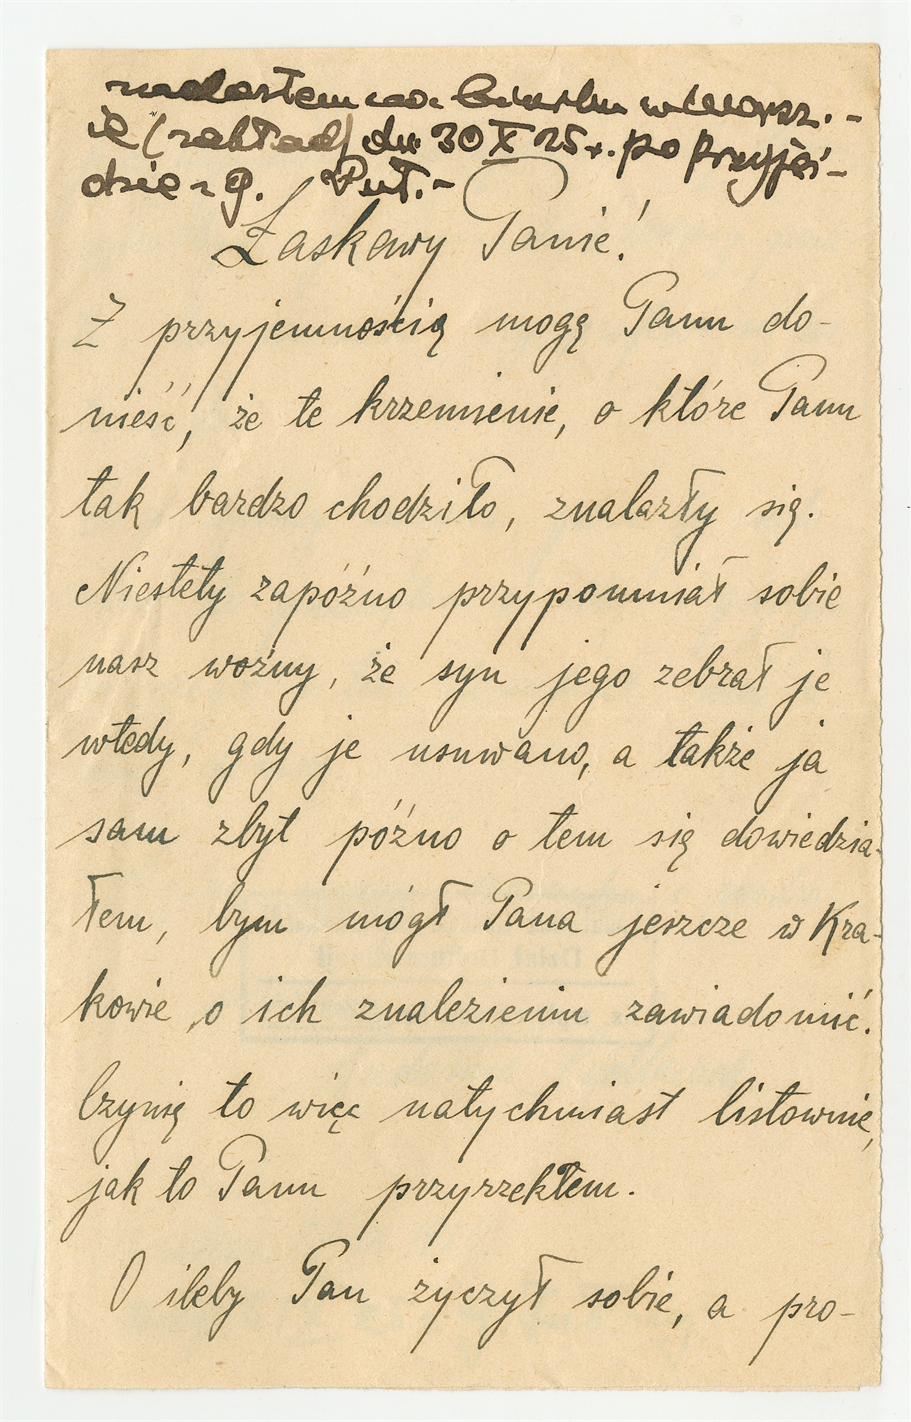 znalazłem na biurku w Warsz.-
ie (zakład) dn. 30 X 25 r. po przyjeź-
dzie z g. Puł.-
Łaskawy Panie!
Z przyjemnością mogę Panu do-
nieść, że te krzemienie, o które Panu
tak bardzo chodziło, znalazły się.
Niestety zapóźno przypomniał sobie
nasz woźny, że syn jego zebrał je
wtedy, gdy je usuwano, a także ja
sam zbyt późno o tem się dowiedzia-
łem, bym mógł Pana jeszcze w Kra-
kowie o ich znalezieniu zawiadomić.
Czynię to więc natychmiast listownie,
jak to Panu przyrzekłem.
O ileby Pan życzył sobie, a pro-